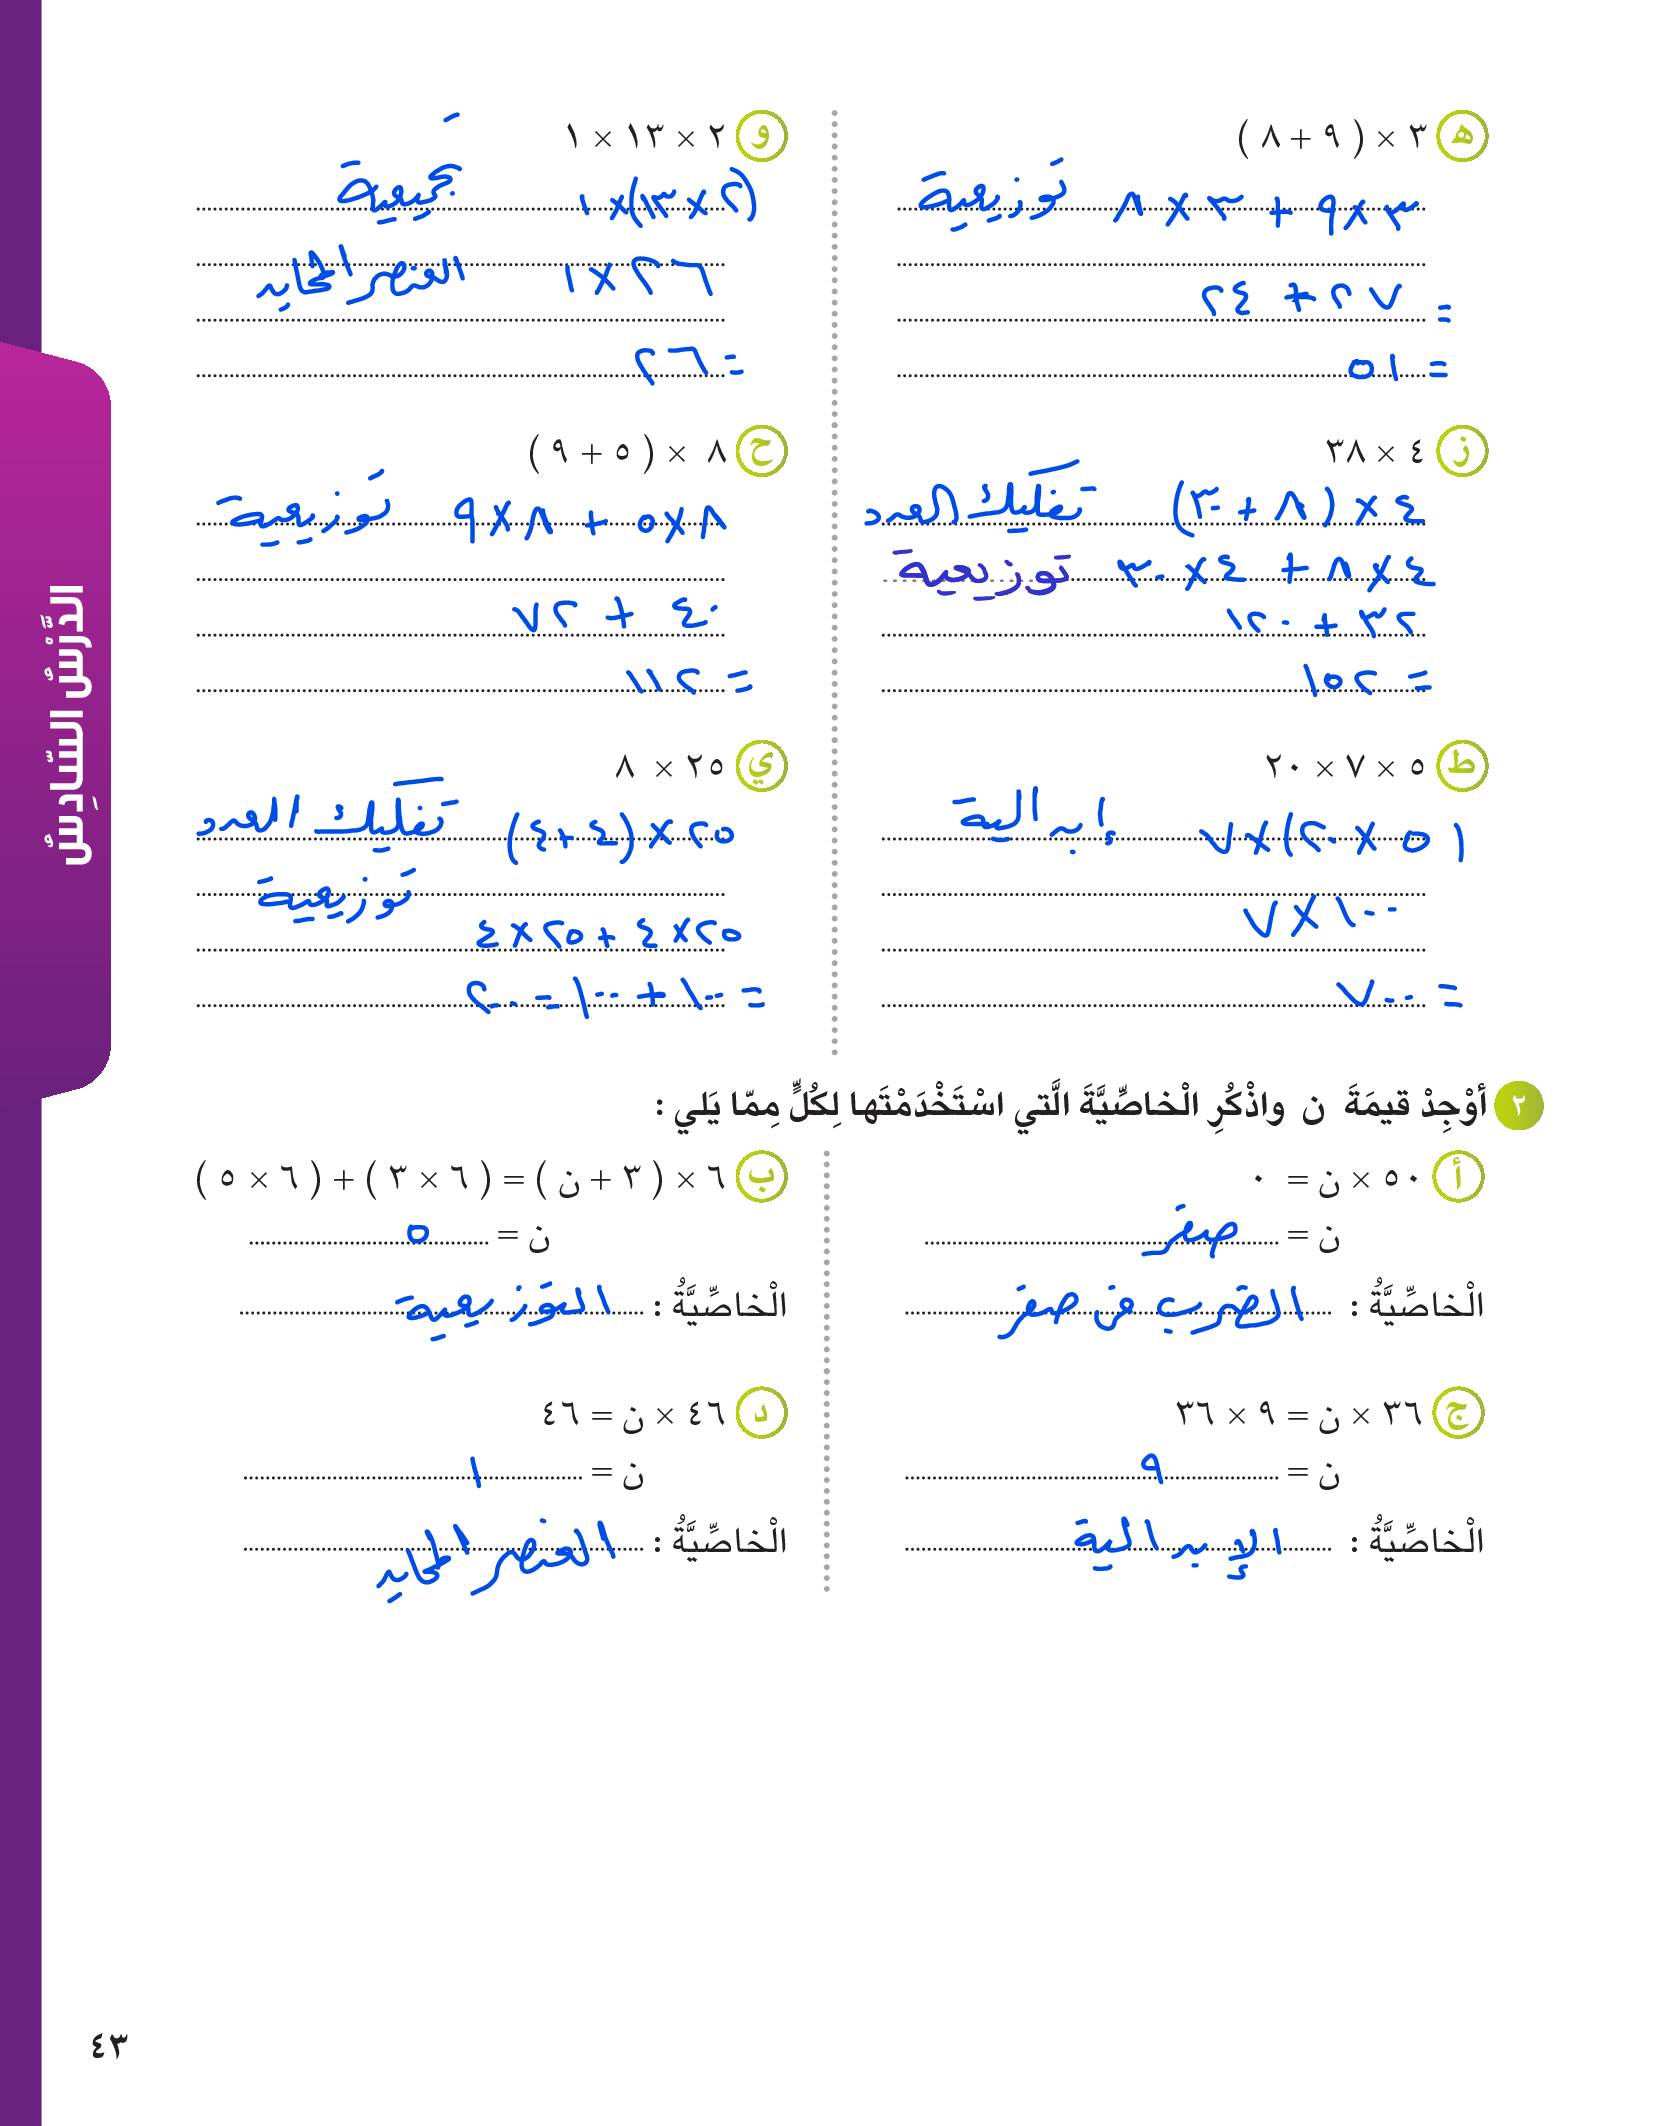 هـ ٣ × ( ٩ + ٨ )
٣ × ٩ + ٣ × ٨ توزيعية
= ٢٧ + ٢٤
= ٥١
و ٢ × ١٣ × ١
(٢ × ١٣) × ١ تجميعية
٢٦ × ١ العنصر المحايد
= ٢٦
ز ٤ × ٣٨
٤ × (٨ + ٣٠) تفكيك العدد
٤ × ٨ + ٤ × ٣٠ توزيعية
٣٢ + ١٢٠
= ١٥٢
ح ٨ × ( ٥ + ٩ )
٨ × ٥ + ٨ × ٩ توزيعية
٤٠ + ٧٢
= ١١٢
ط ٥ × ٧ × ٢٠
(٥ × ٢٠) × ٧ إبدالية
١٠٠ × ٧
= ٧٠٠
ي ٢٥ × ٨
٢٥ × (٤ + ٤) تفكيك العدد
توزيعية
٢٥ × ٤ + ٢٥ × ٤
= ١٠٠ + ١٠٠ = ٢٠٠
٢ أَوْجِدْ قيمَةَ ن واذْكُرِ الْخاصِّيَّةَ الَّتي اسْتَخْدَمْتَها لِكُلٍّ مِمّا يَلي :
أ ٥٠ × ن = ٠
ن = صفر
الْخاصِّيَّةُ : الضرب في صفر
ب ٦ × ( ٣ + ن ) = ( ٦ × ٣ ) + ( ٦ × ٥ )
ن = ٥
الْخاصِّيَّةُ : التوزيعية
ج ٣٦ × ن = ٩ × ٣٦
ن = ٩
الْخاصِّيَّةُ : الإبدالية
د ٤٦ × ن = ٤٦
ن = ١
الْخاصِّيَّةُ : العنصر المحايد
الدَّرْسُ السّادِسُ
٤٣